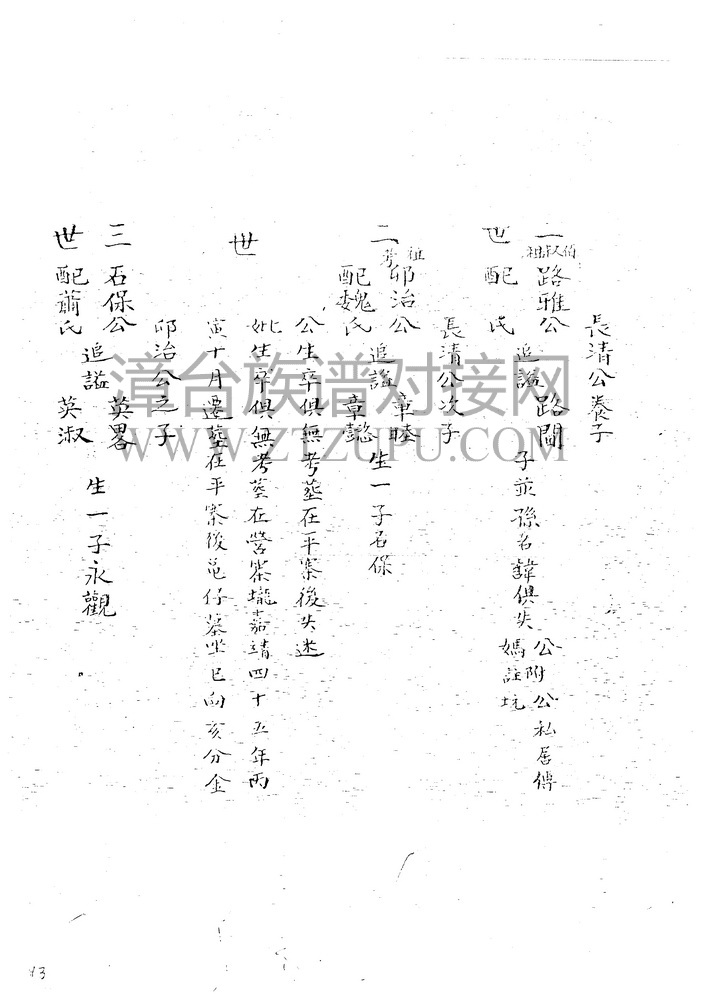 長清公養子
二世
伯叔祖
路雅公
配 氏
追謚 路閶
子並孫名諱俱失
公附公私居傅
媽註坑
長清公次子
二世
祖考
邱治公 追謚 章睦
配魏氏 章懿
生一子石保
公生卒俱無考葬在平寨後失迷
妣生卒俱無考葬在營寨壠嘉靖四十五年丙
寅十月遷葬在平寨後 仔墓坐巳向亥分金
邱治公之子
三世
石保公 追謚 英畧
配蕭氏 英淑
生一子永觀
漳台族谱对接网
WWW.ZTZUPU.COM
43